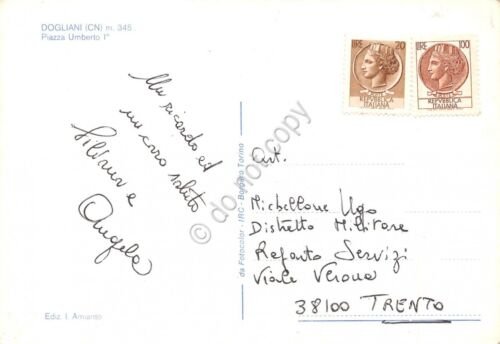 DOGLIANI (CN) m. 345
Piazza Umberto I°
Un ricordo ed
un caro saluto
Silvana e
Angela
da Fotocolor - IRC - Borgaro Torino
Ediz. I. Amianto
LIRE 20
REPVBBLICA
ITALIANA
LIRE 100
REPVBBLICA
ITALIANA
Art.
Michellone Ugo
Distretto Militare
Reparto Servizi
Viale Verona
38100 TRENTO
do not copy